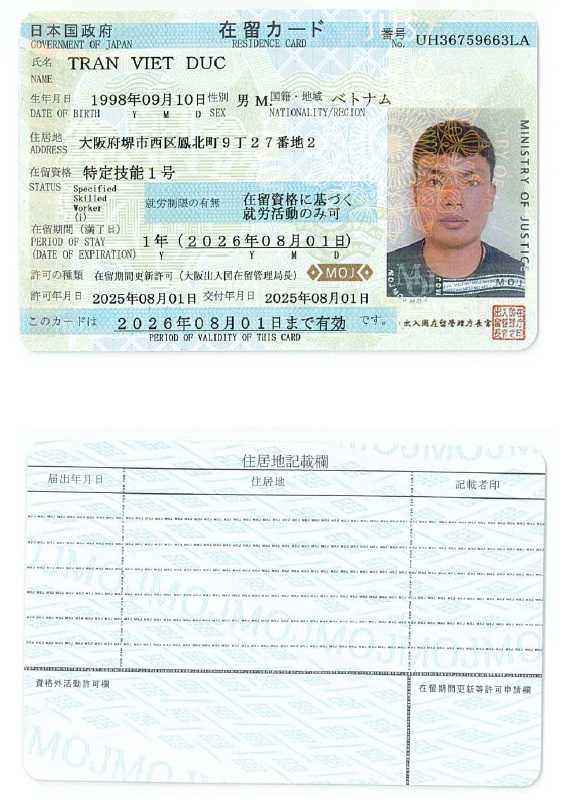 日本国政府 在留カード 番号 UH36759663LA
GOVERNMENT OF JAPAN RESIDENCE CARD No.
氏名 TRAN VIET DUC
NAME
生年月日 1998年09月10日 性別 男 M. 国籍・地域 ベトナム
DATE OF BIRTH Y M D SEX NATIONALITY/REGION
住居地 大阪府堺市西区鳳北町9丁27番地2
ADDRESS
在留資格 特定技能1号
STATUS Specified
Skilled
Worker
(i)
就労制限の有無 在留資格に基づく
就労活動のみ可
在留期間(満了日)
PERIOD OF STAY 1年(2026年08月01日)
(DATE OF EXPIRATION) Y Y M D
許可の種類 在留期間更新許可(大阪出入国在留管理局長) MOJ
許可年月日 2025年08月01日 交付年月日 2025年08月01日
このカードは 2026年08月01日まで有効 です。
PERIOD OF VALIDITY OF THIS CARD
MINISTRY OF JUSTICE
MOJ
出入国在留管理庁長官
住居地記載欄
届出年月日 住居地 記載者印
資格外活動許可欄 在留期間更新等許可申請欄
MOJMOJMOJ